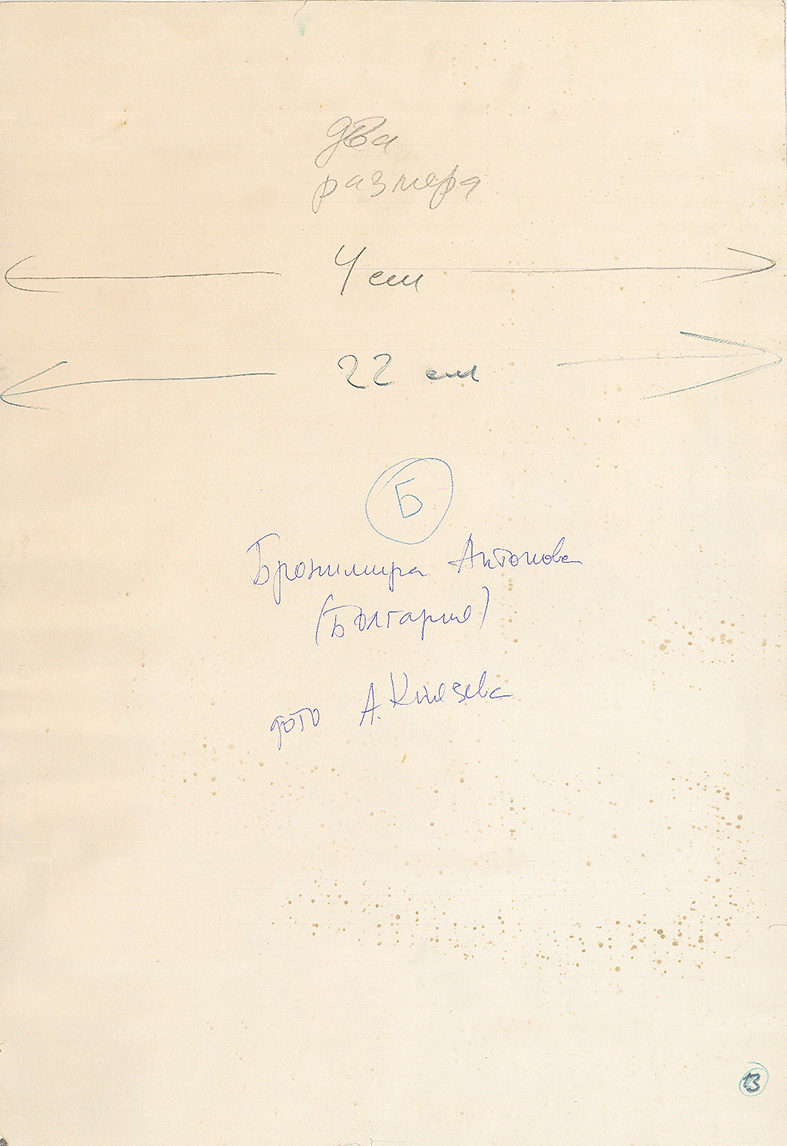 два
размера
4 см
22 см
Б
Бронимира Антонова
(Болгария)
фото А. Князева
13